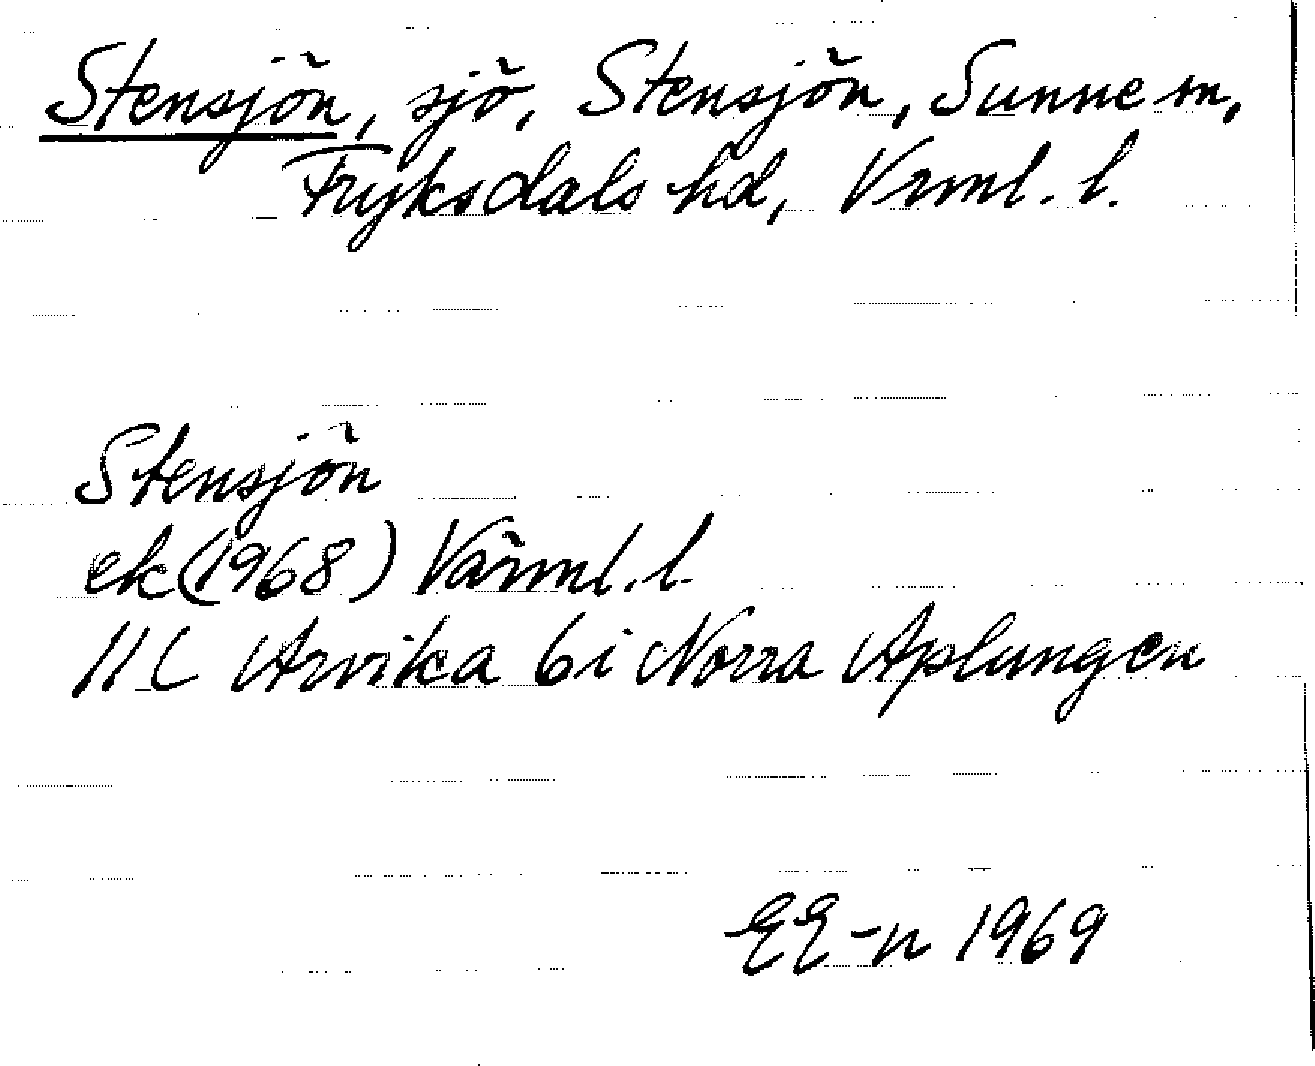 Stensjön, sjö, Stensjön, Sunne sn,
Fryksdals hd, Vrml. l.
Stensjön
ek (1968) Värml. l.
11C Arvika 6i Norra Aplungen
EE-n 1969